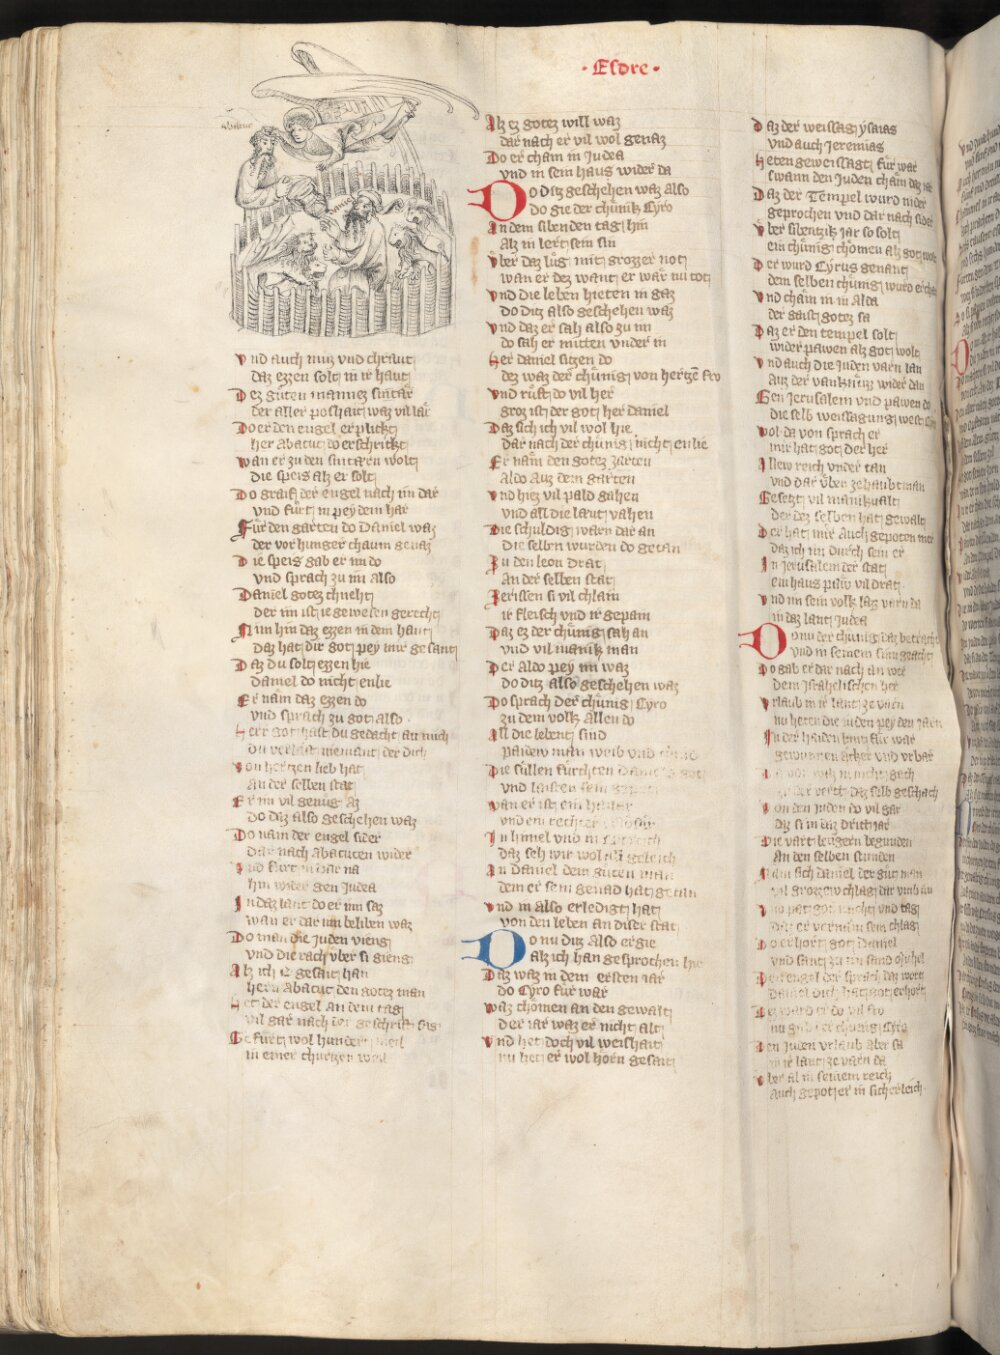 · Esdre ·
abacuc
daniel
Vnd auch muz vnd chraut
daz ezzen solt in ir haut
Dez guten mannez sintär
der aller poshait waz vil lär
Do er den engel erplickt
her Abacuc do erschrickt
wan er zu den sintärn wolt
die speis alz er solt
Do graif der engel nach im dar
vnd furt in pey dem har
Für den garten do Daniel waz
der vor hunger chaum genaz
Die speis gab er im do
vnd sprach zu im also
Daniel gotez chneht
der im ist ie gewesen gerecht
Nim hin daz ezzen in dem haut
Daz hat dir got pey mir gesant
Daz du solt ezzen hie
Daniel do nicht enlie
Er nam daz ezzen do
vnd sprach zu got also
Herr got hast du gedacht an mich
Du verlast niemant der dich
Von hertzen lieb hat
An der selben stat
Er im vil genug az
Do diz also geschehen waz
Do nam der engel sider
Dar nach Abacucen wider
Vnd furt in dar na
hin wider gen Judea
In daz lant do er im saz
wan er dar inn beliben waz
Do man die Juden vieng
vnd die rach vber si gieng
Alz ich ê gesait han
hern Abacuc den gotez man
Het der engel an dem tag
vil gar nach der geschrift sag
Gefürt wol hundert meil
in einer churtzen weil
Alz ez gotez will waz
dar nach er vil wol genaz
Do er cham in Judea
vnd in sein haus wider da
Do diz geschehen waz also
do gie der chünik Cyro
An dem sibenden tag hin
Alz in lert sein sin
Vber daz lug mit grozzer not
wan er dez want er wär nu tot
Vnd die leben hieten in gaz
do ditz also geschehen waz
Vnd daz er sah also zu im
do sah er mitten vnder in
Her Daniel sitzen do
dez waz der chünig von hertzen fro
Vnd ruft do vil her
groz ist der got her Daniel
Daz sich ich vil wol hie
Dar nach der chünig nicht enlie
Er nam den gotez zarten
Aldo auz dem garten
Vnd hiez vil pald gahen
vnd all die laut vahen
Die schuldig warn dar an
die selben wurden do getan
Zu den leon drat
An der selben stat
Zerissen si vil chlain
ir fleisch vnd ir gepain
Daz ez der chünig sah an
vnd vil manik man
Der Aldo pey im waz
do ditz also geschehen waz
Do sprach der chünig Cyro
zu dem volk allen do
All die lebent sind
paidew man weib vnd chind
Die süllen fürchten Daniels got
vnd laisten sein gepot
Wan er ist ein hailer
vnd ein rechter erlosär
In himel vnd in ertreich
daz seh wir wol all geleich
An Daniel dem guten man
dem er sein genad hat getan
Vnd in also erledigt hat
von den leben an diser stat
Do nu ditz also ergie
alz ich han gesprochen hie
Daz waz in dem ersten iar
do Cyro für war
Waz chömen an den gewalt
der iar waz er nicht alt
Vnd het doch vil weishait
nu het er wol horn gesait
Daz der weissag ysaias
vnd auch Jeremias
Heten geweissagt für war
swann den Juden cham daz iar
Daz der Tempel wurd nider
geprochen vnd dar nach sider
Vber sibentzik iar so solt
ein chünig chömen alz got wolt
Der wurd Cyrus genant
dem selben chünig wurd erchant
Vnd cham in in Alda
der gaist gotez sa
Daz er den tempel solt
wider pawen alz got wolt
Vnd auch die Juden varn lan
Auz der vanknüzz wider dan
Gen Jerusalem vnd pawen do
die selb weissagung west Cyro
Vol da von sprach er
mir hat got der her
Allew reich vnder tan
vnd dar vber ze haubtman
Gesetzt vil manikualt
der dez selben hat gewalt
Der hat mir Auch gepoten mer
daz ich im durch sein er
In Jerusalem der stat
ein haus paw vil drat
Vnd im sein volk laz varn da
in daz lant Judea
Do nu der chünig daz betracht
vnd in seinem sinn gedacht
Do gab er dar nach an wer
dem Israhelischen her
Vrlaub in ir lant ze varn
nu heten die iuden pey den iarn
In der haiden lant für war
gewunnen äcker vnd vrbar
Da von waz in nicht gäch
Von den Juden do vil gar
diz si in daz dritt iar
Die vart lengern begunden
An den selben stunden
Nam sich Daniel der gut man
vil grozzew chlag dar vmb an
Vnd pat got nacht vnd tag
Daz er vernäm sein chlag
Do erhort got Daniel
vnd sant zu im sand Michel
Den engel der sprach daz wort
Daniel dich hat got erhort
Dez ward er do vil fro
nu gab der chünig Cyro
Den Juden vrlaub Aber sa
in ir lant ze varn da
Vber al in seinem reich
auch gepot er in sicherleich